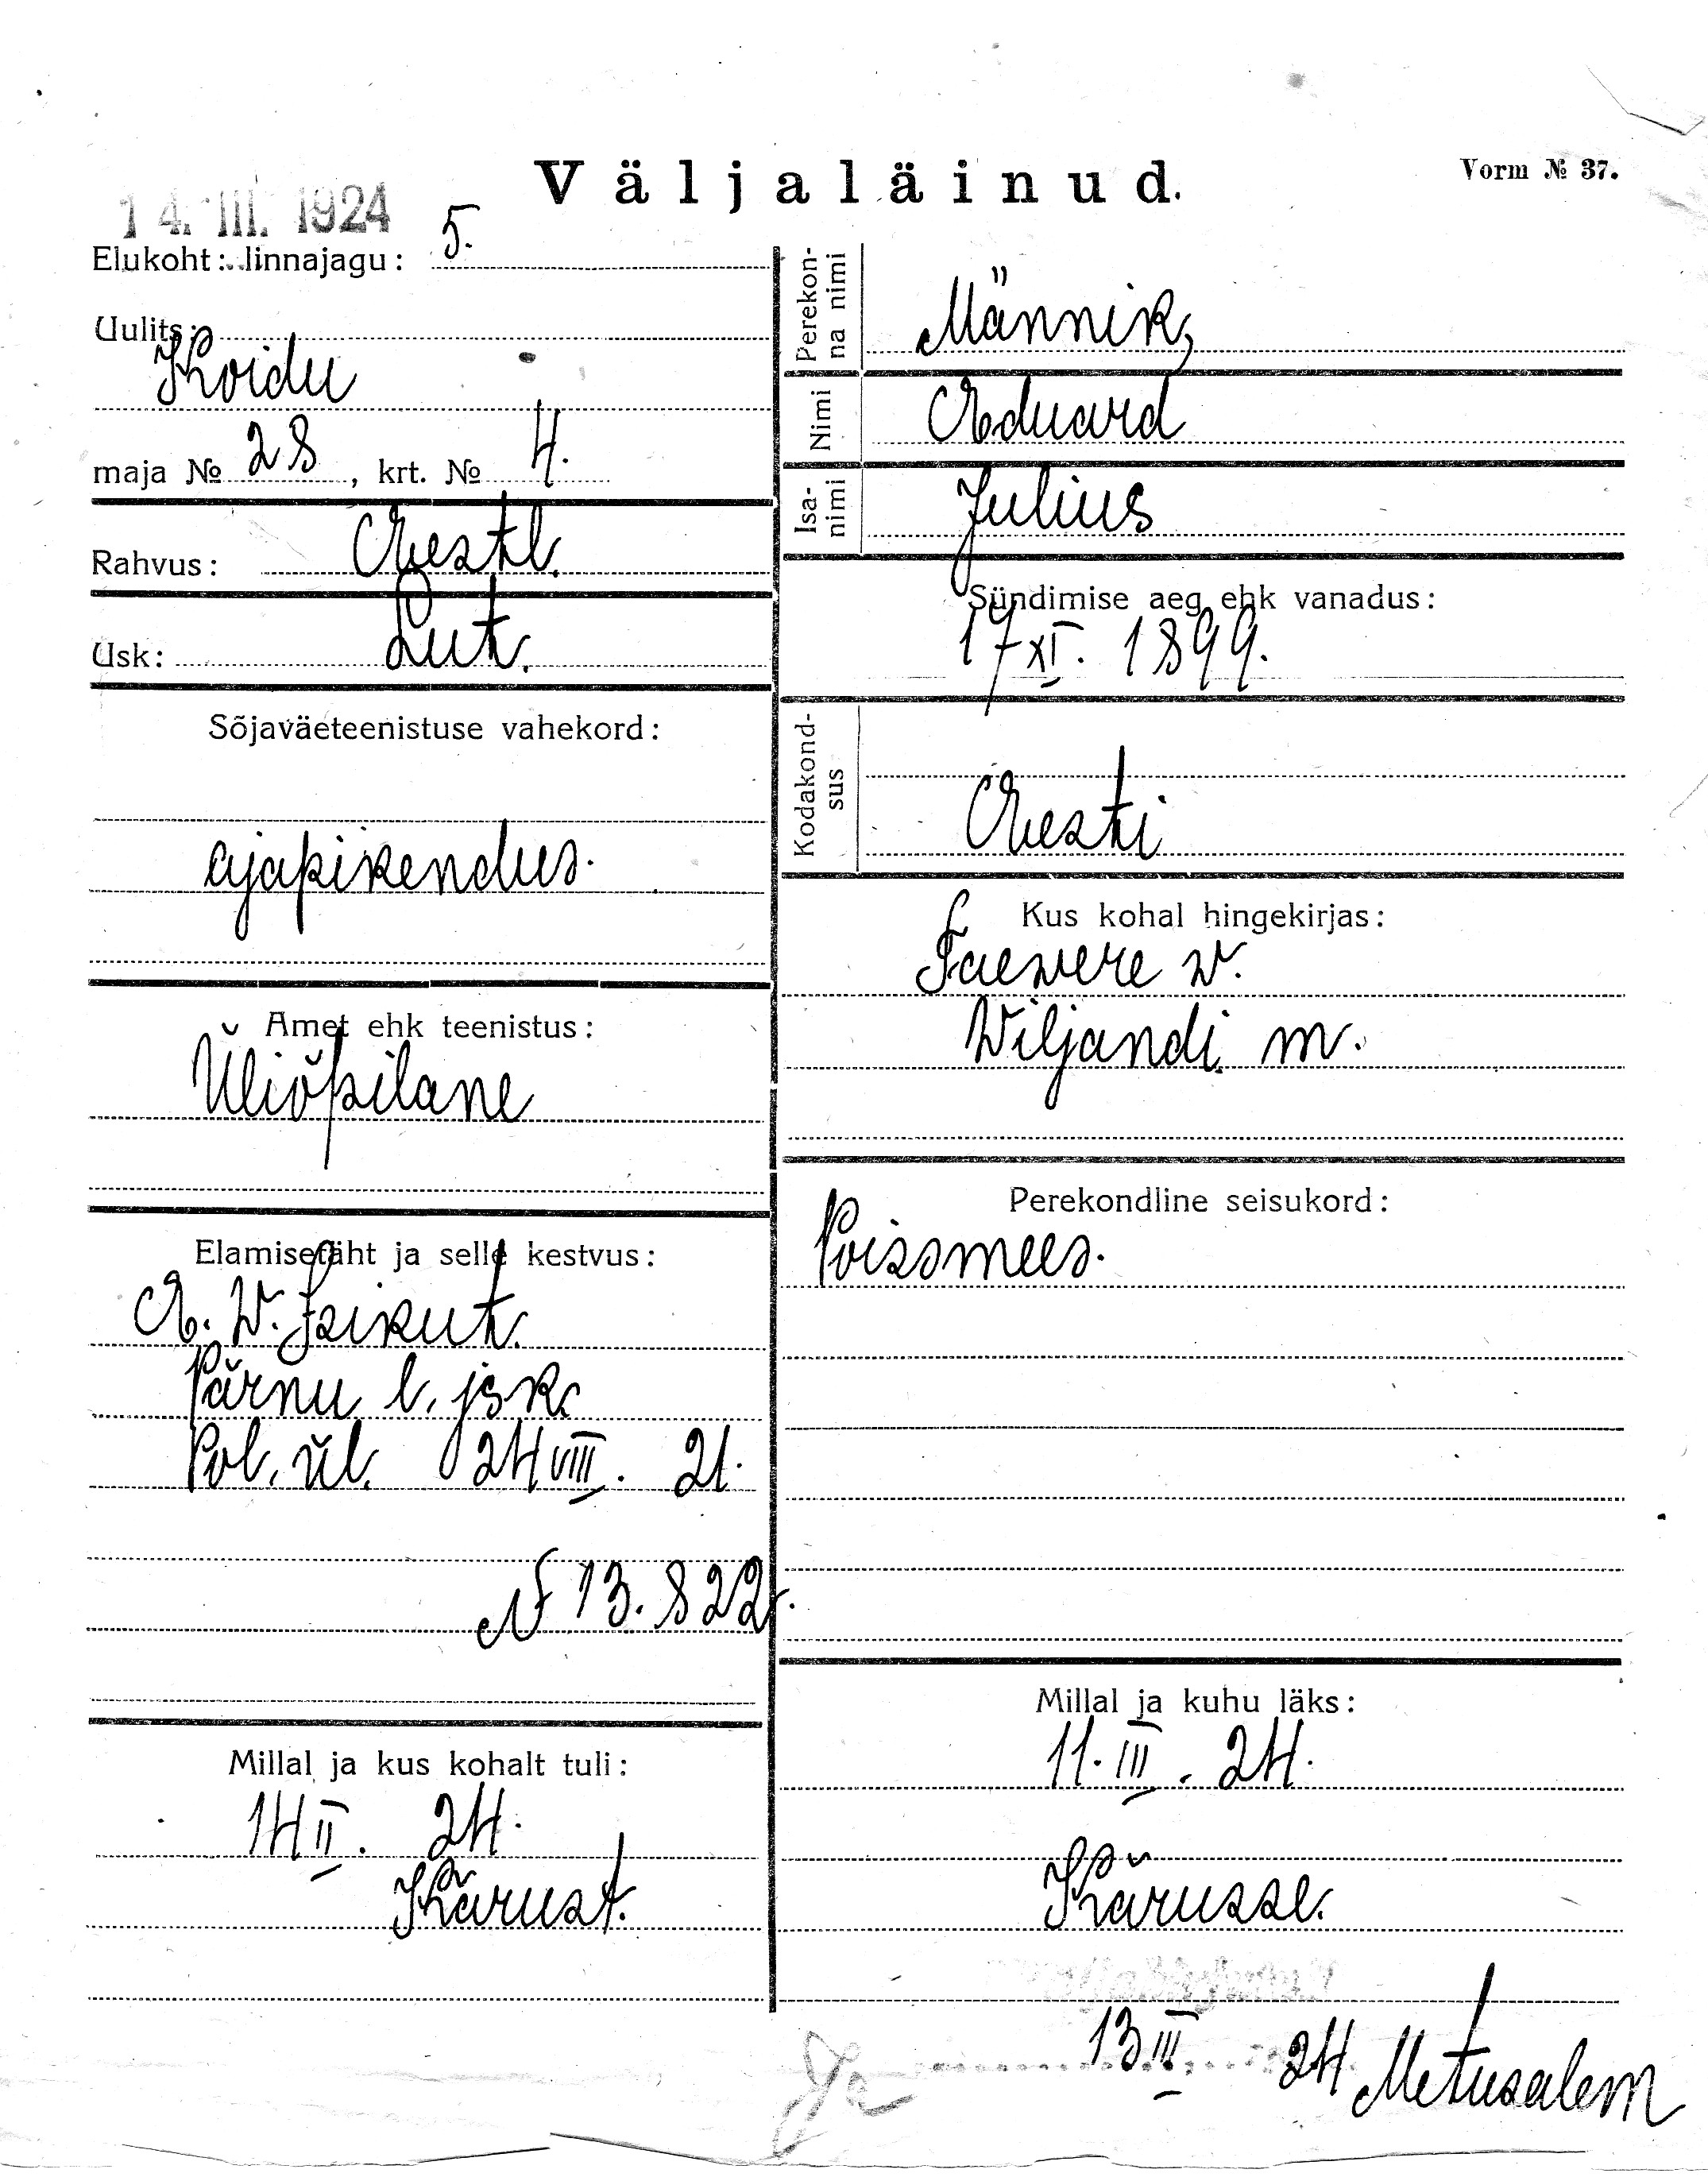 Väljaläinud.
Vorm № 37.
14. III. 1924
Elukoht: linnajagu: 5.
Uulits:
Koidu
maja № 28, krt. № 4.
Rahvus: Eestl.
Usk: Lut.
Sõjaväeteenistuse vahekord:
ajapikendus.
Amet ehk teenistus:
Üliõpilane
Elamisetäht ja selle kestvus:
E. W. Isikut.
Pärnu l. jsk.
Pol. ül. 24 VIII. 21.
№ 13.822.
Millal ja kus kohalt tuli:
14 II. 24.
Kärust.
Perekonna nimi
Männik,
Nimi
Eduard
Isanimi
Julius
Sündimise aeg ehk vanadus:
17 XI. 1899.
Kodakondsus
Eesti
Kus kohal hingekirjas:
Taewere w.
Wiljandi m.
Perekondline seisukord:
Poissmees.
Millal ja kuhu läks:
11. III. 24.
Kärusse.
13 III 24 Metusalem